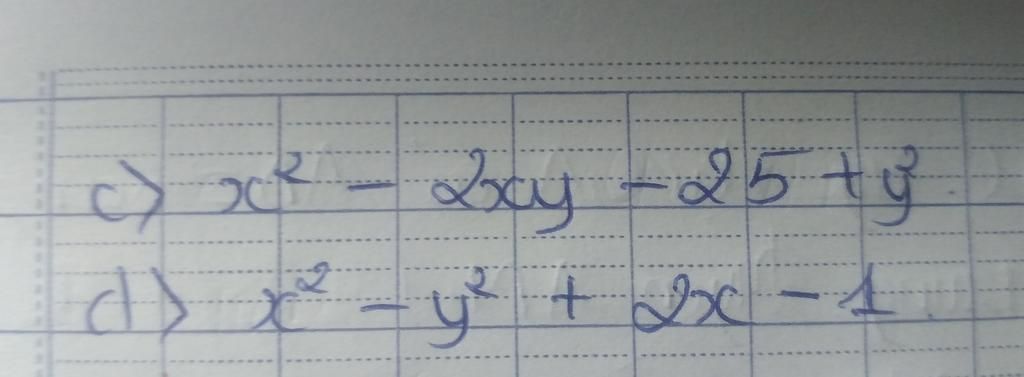 c) x² - 2xy - 25 + y²
d) x² - y² + 2x - 1